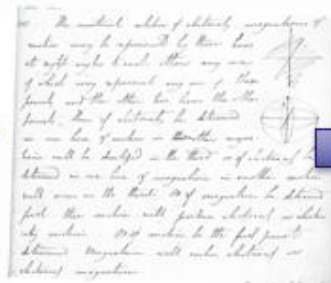 The mutual relation of electricity, magnetism &
motion may be represented by three lines
at right angles to each other any one
of which may represent any one of these
points and the other two lines the other
points. Then if electricity be determined
in one line & motion in another magne-
tism will be developed in the third or if electricity be
determined in one line & magnetism in another motion
will occur in the third. Or if magnetism be determined
first then motion will produce electricity or electri-
city motion. Or if motion be the first point
determined Magnetism will evolve electricity or
electricity magnetism